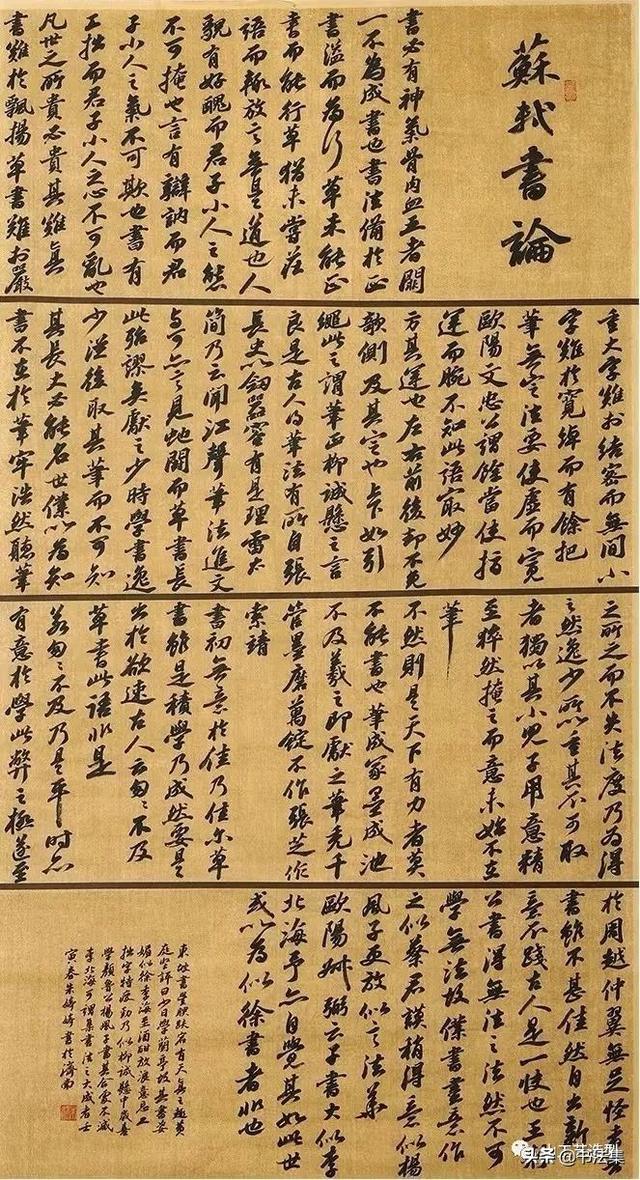 蘇軾書論
書必有神氣骨肉血五者闕
一不為成書也書法備於正
書溢而為行草未能正
書而能行草猶未嘗莊
語而輒放言無是道也人
貌有好醜而君子小人之態
不可掩也言有辯訥而君
子小人之氣不可欺也書有
工拙而君子小人之心不可亂也
凡世之所貴必貴其難真
書難於飄揚草書難於嚴
重大字難於結密而無間小
字難於寬綽而有餘把
筆無定法要使虛而寬
歐陽文忠公謂余當使指
運而腕不知此語最妙
方其運也左右前後卻不免
欹側及其定也上下如引
繩此之謂筆正柳誠懸之言
良是古人得筆法有所自張
長史以劍器容有是理雷太
簡乃云聞江聲筆法進文
與可亦言見蛇鬪而草書長
此殆謬矣獻之少時學書逸
少從後取其筆而不可知
其長大必能名世僕以為知
書不在於筆牢浩然聽筆
之所之而不失法度乃為得
之然逸少所以重其不可取
者獨以其小兒子用意精
至猝然掩之而意未始不在
筆
不然則是天下有力者莫
不能書也筆成冢墨成池
不及羲之即獻之筆禿千
管墨磨萬錠不作張芝作
索靖
書初無意於佳乃佳爾草
書雖是積學乃成然要是
出於欲速古人云匆匆不及
草書此語非是
若匆匆不及乃是平時亦
有意於學此弊之極遂至
於周越仲翼無足怪者吾
書雖不甚佳然自出新
意不踐古人是一快也王荊
公書得無法之法然不可
學無法故僕書盡意作
之似蔡君謨稍得意似楊
風子更放似言法華
歐陽叔弼云子書大似李
北海予亦自覺其如此世
或以為似徐書者非也
東坡書豐腴跌宕有天真之趣黃
庭堅評曰少日學蘭亭故其書姿
媚似徐季海至酒酣放浪意忘工
拙字特瘦勁乃似柳誠懸中歲喜
學顏魯公楊風子書其合處不減
李北海可謂集書法之大成者壬
寅春朱書於濟南
头条@书法集